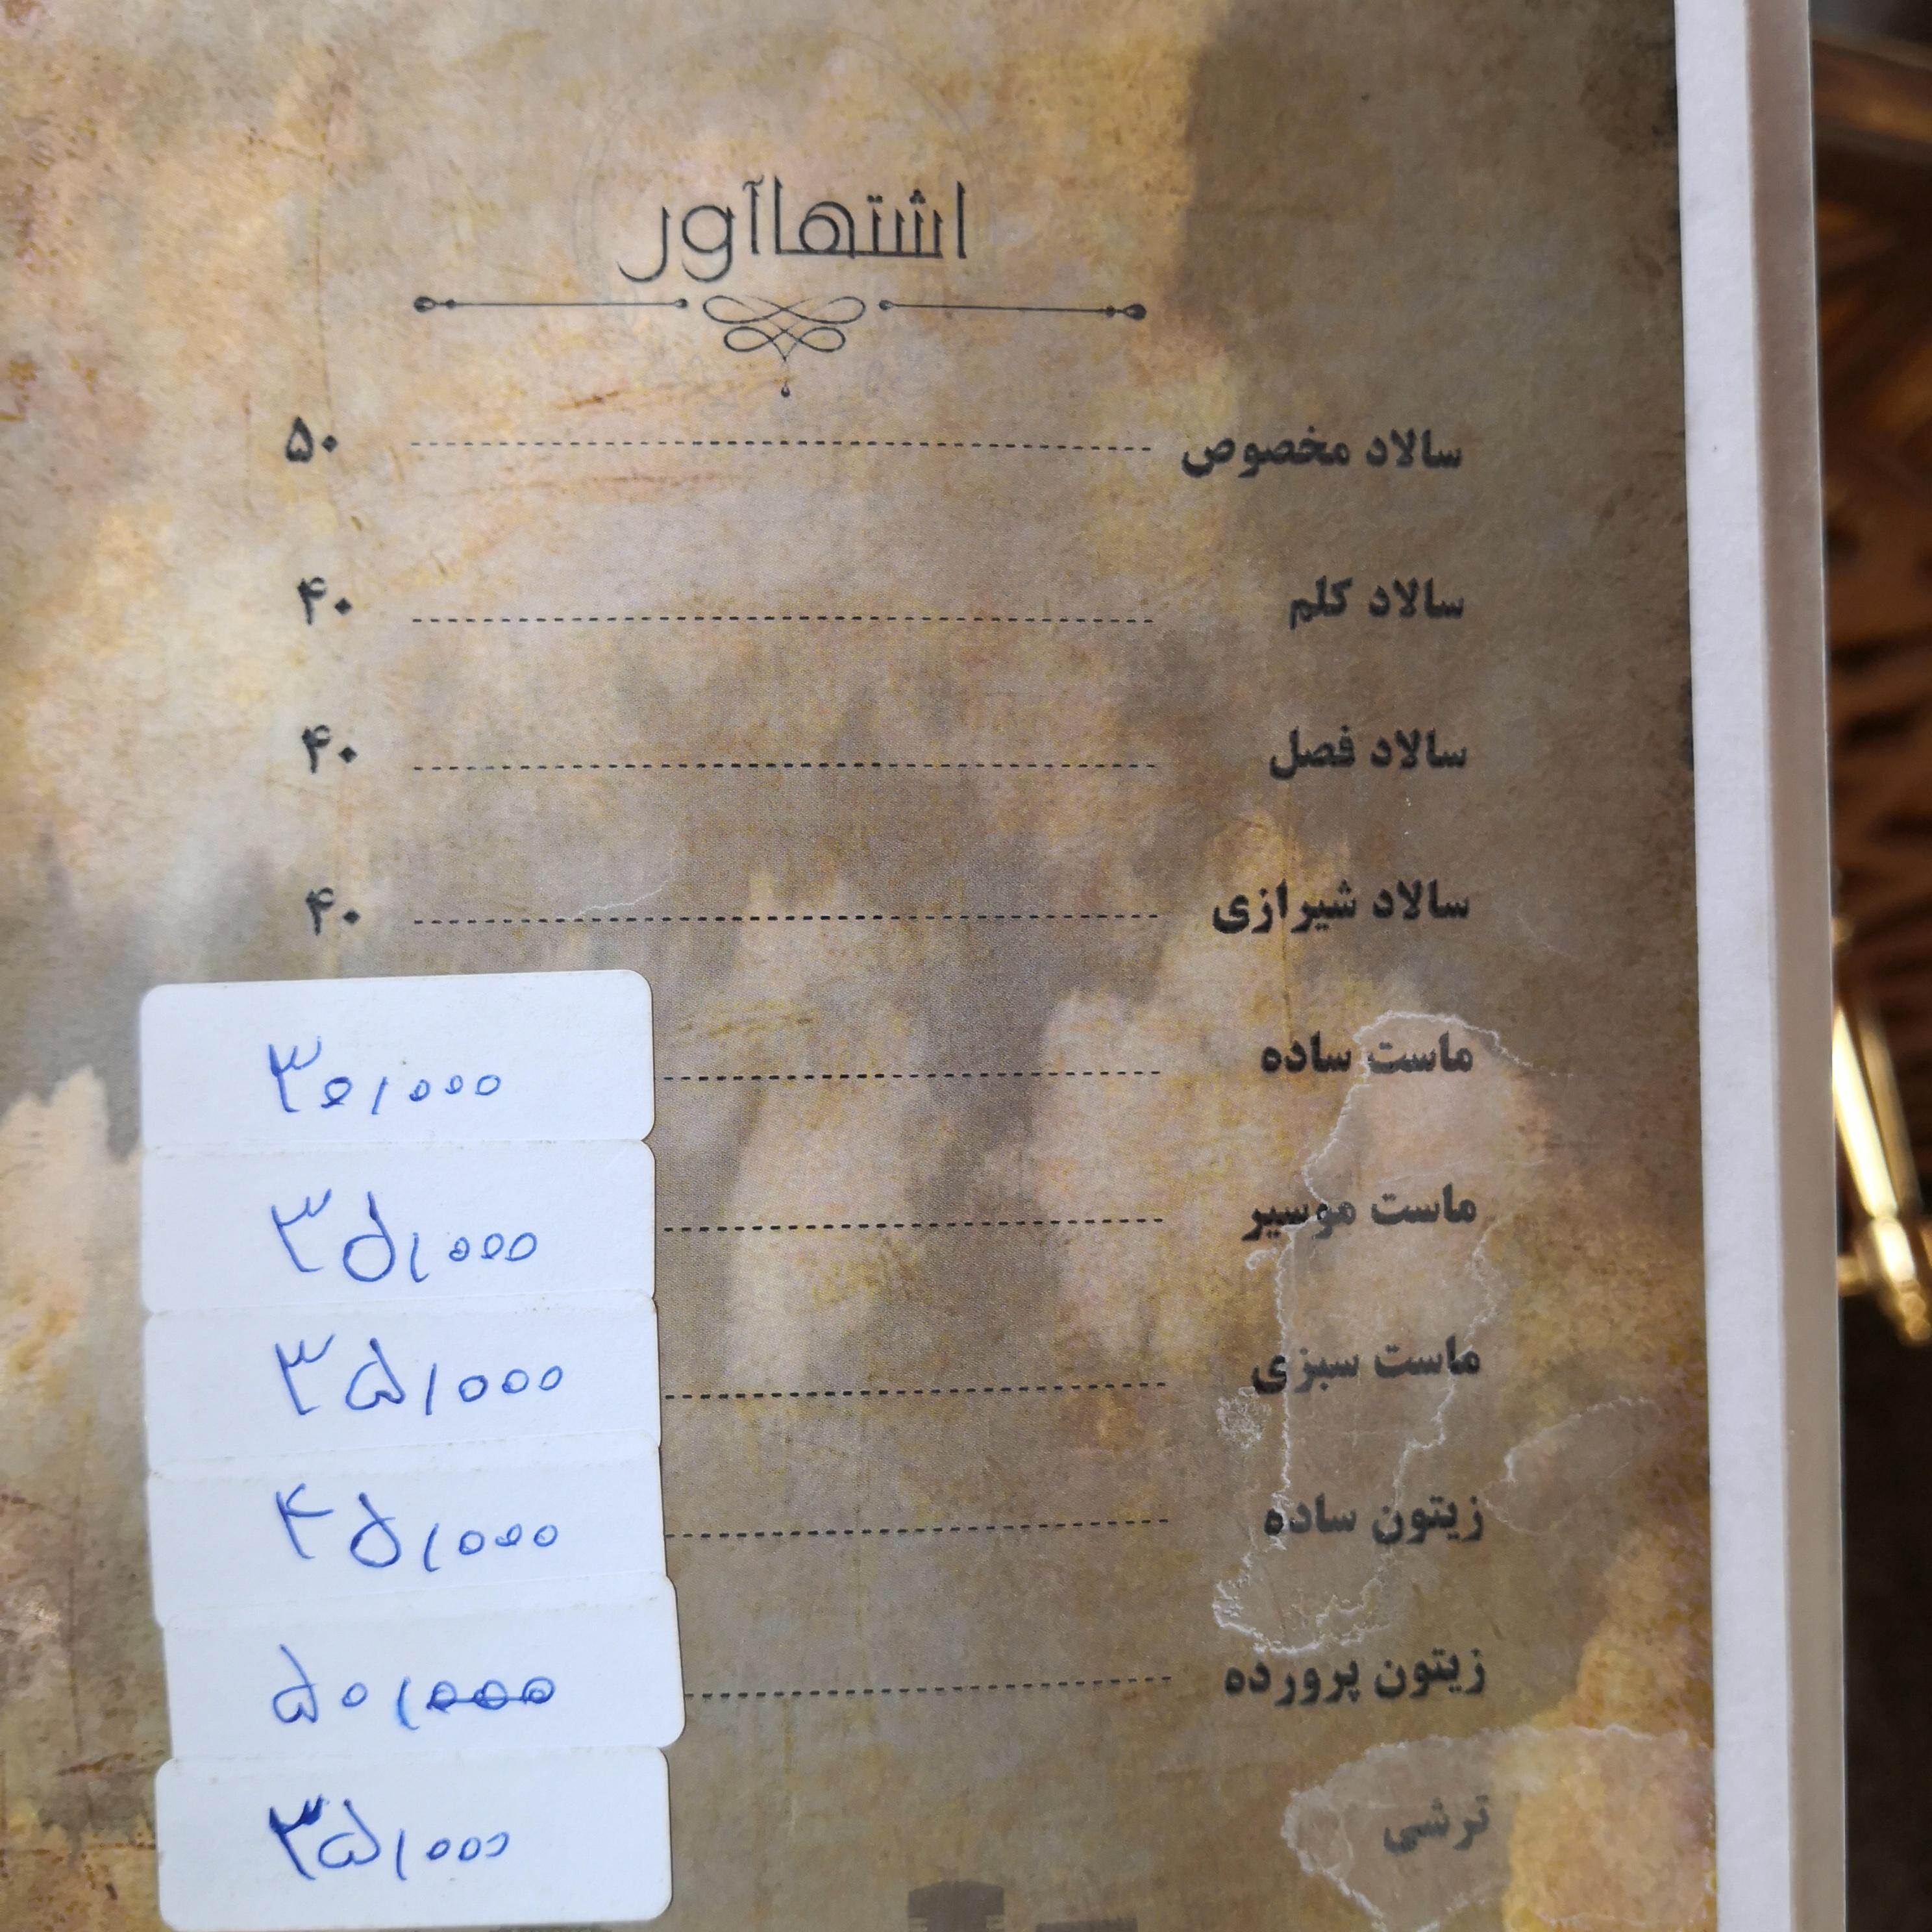 اشتهاآور
سالاد مخصوص ۵۰
سالاد کلم ۴۰
سالاد فصل ۴۰
سالاد شیرازی ۴۰
ماست ساده ۳۰,۰۰۰
ماست موسیر ۳۵,۰۰۰
ماست سبزی ۳۵,۰۰۰
زیتون ساده ۴۵,۰۰۰
زیتون پرورده ۵۰,۰۰۰
ترشی ۳۵,۰۰۰